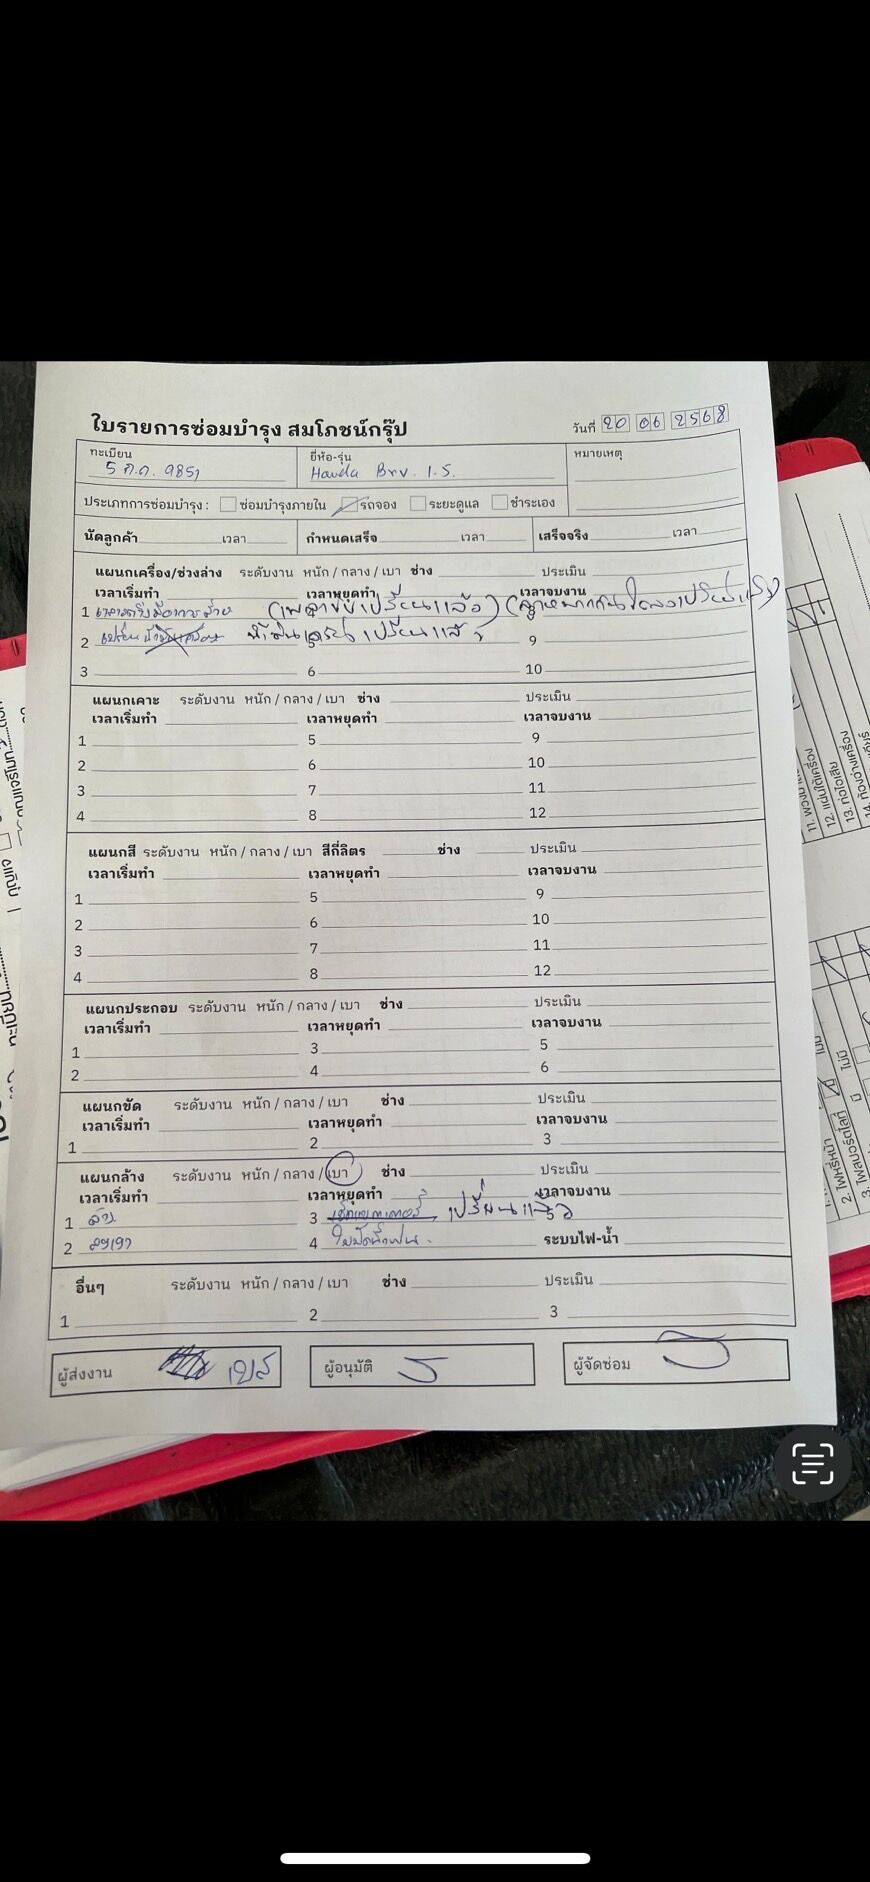 ใบรายการซ่อมบำรุง สมโภชน์กรุ๊ป
วันที่ 20 06 2568
ทะเบียน ยี่ห้อ-รุ่น หมายเหตุ
5 ก.ก. 9851 Honda Brv 1.5.
ประเภทการซ่อมบำรุง : ซ่อมบำรุงภายใน รถจอง ระยะดูแล ชำระเอง
นัดลูกค้า เวลา กำหนดเสร็จ เวลา เสร็จจริง เวลา
แผนกเครื่อง/ช่วงล่าง ระดับงาน หนัก / กลาง / เบา ช่าง ประเมิน
เวลาเริ่มทำ เวลาหยุดทำ เวลาจบงาน
1 (เพลาขับเปลี่ยนแล้ว)
2 เปลี่ยน เปลี่ยนแล้ว 5 9
3 6 10
แผนกเคาะ ระดับงาน หนัก / กลาง / เบา ช่าง ประเมิน
เวลาเริ่มทำ เวลาหยุดทำ เวลาจบงาน
1 5 9
2 6 10
3 7 11
4 8 12
แผนกสี ระดับงาน หนัก / กลาง / เบา สีกี่ลิตร ช่าง ประเมิน
เวลาเริ่มทำ เวลาหยุดทำ เวลาจบงาน
1 5 9
2 6 10
3 7 11
4 8 12
แผนกประกอบ ระดับงาน หนัก / กลาง / เบา ช่าง ประเมิน
เวลาเริ่มทำ เวลาหยุดทำ เวลาจบงาน
1 3 5
2 4 6
แผนกขัด ระดับงาน หนัก / กลาง / เบา ช่าง ประเมิน
เวลาเริ่มทำ เวลาหยุดทำ เวลาจบงาน
1 2 3
แผนกล้าง ระดับงาน หนัก / กลาง / เบา ช่าง ประเมิน
เวลาเริ่มทำ เวลาหยุดทำ เวลาจบงาน
1 ล้าง 3 เปลี่ยนแล้ว 5
2 4 ใบปัดน้ำฝน ระบบไฟ-น้ำ
อื่นๆ ระดับงาน หนัก / กลาง / เบา ช่าง ประเมิน
1 2 3
ผู้ส่งงาน ผู้อนุมัติ ผู้จัดซ่อม